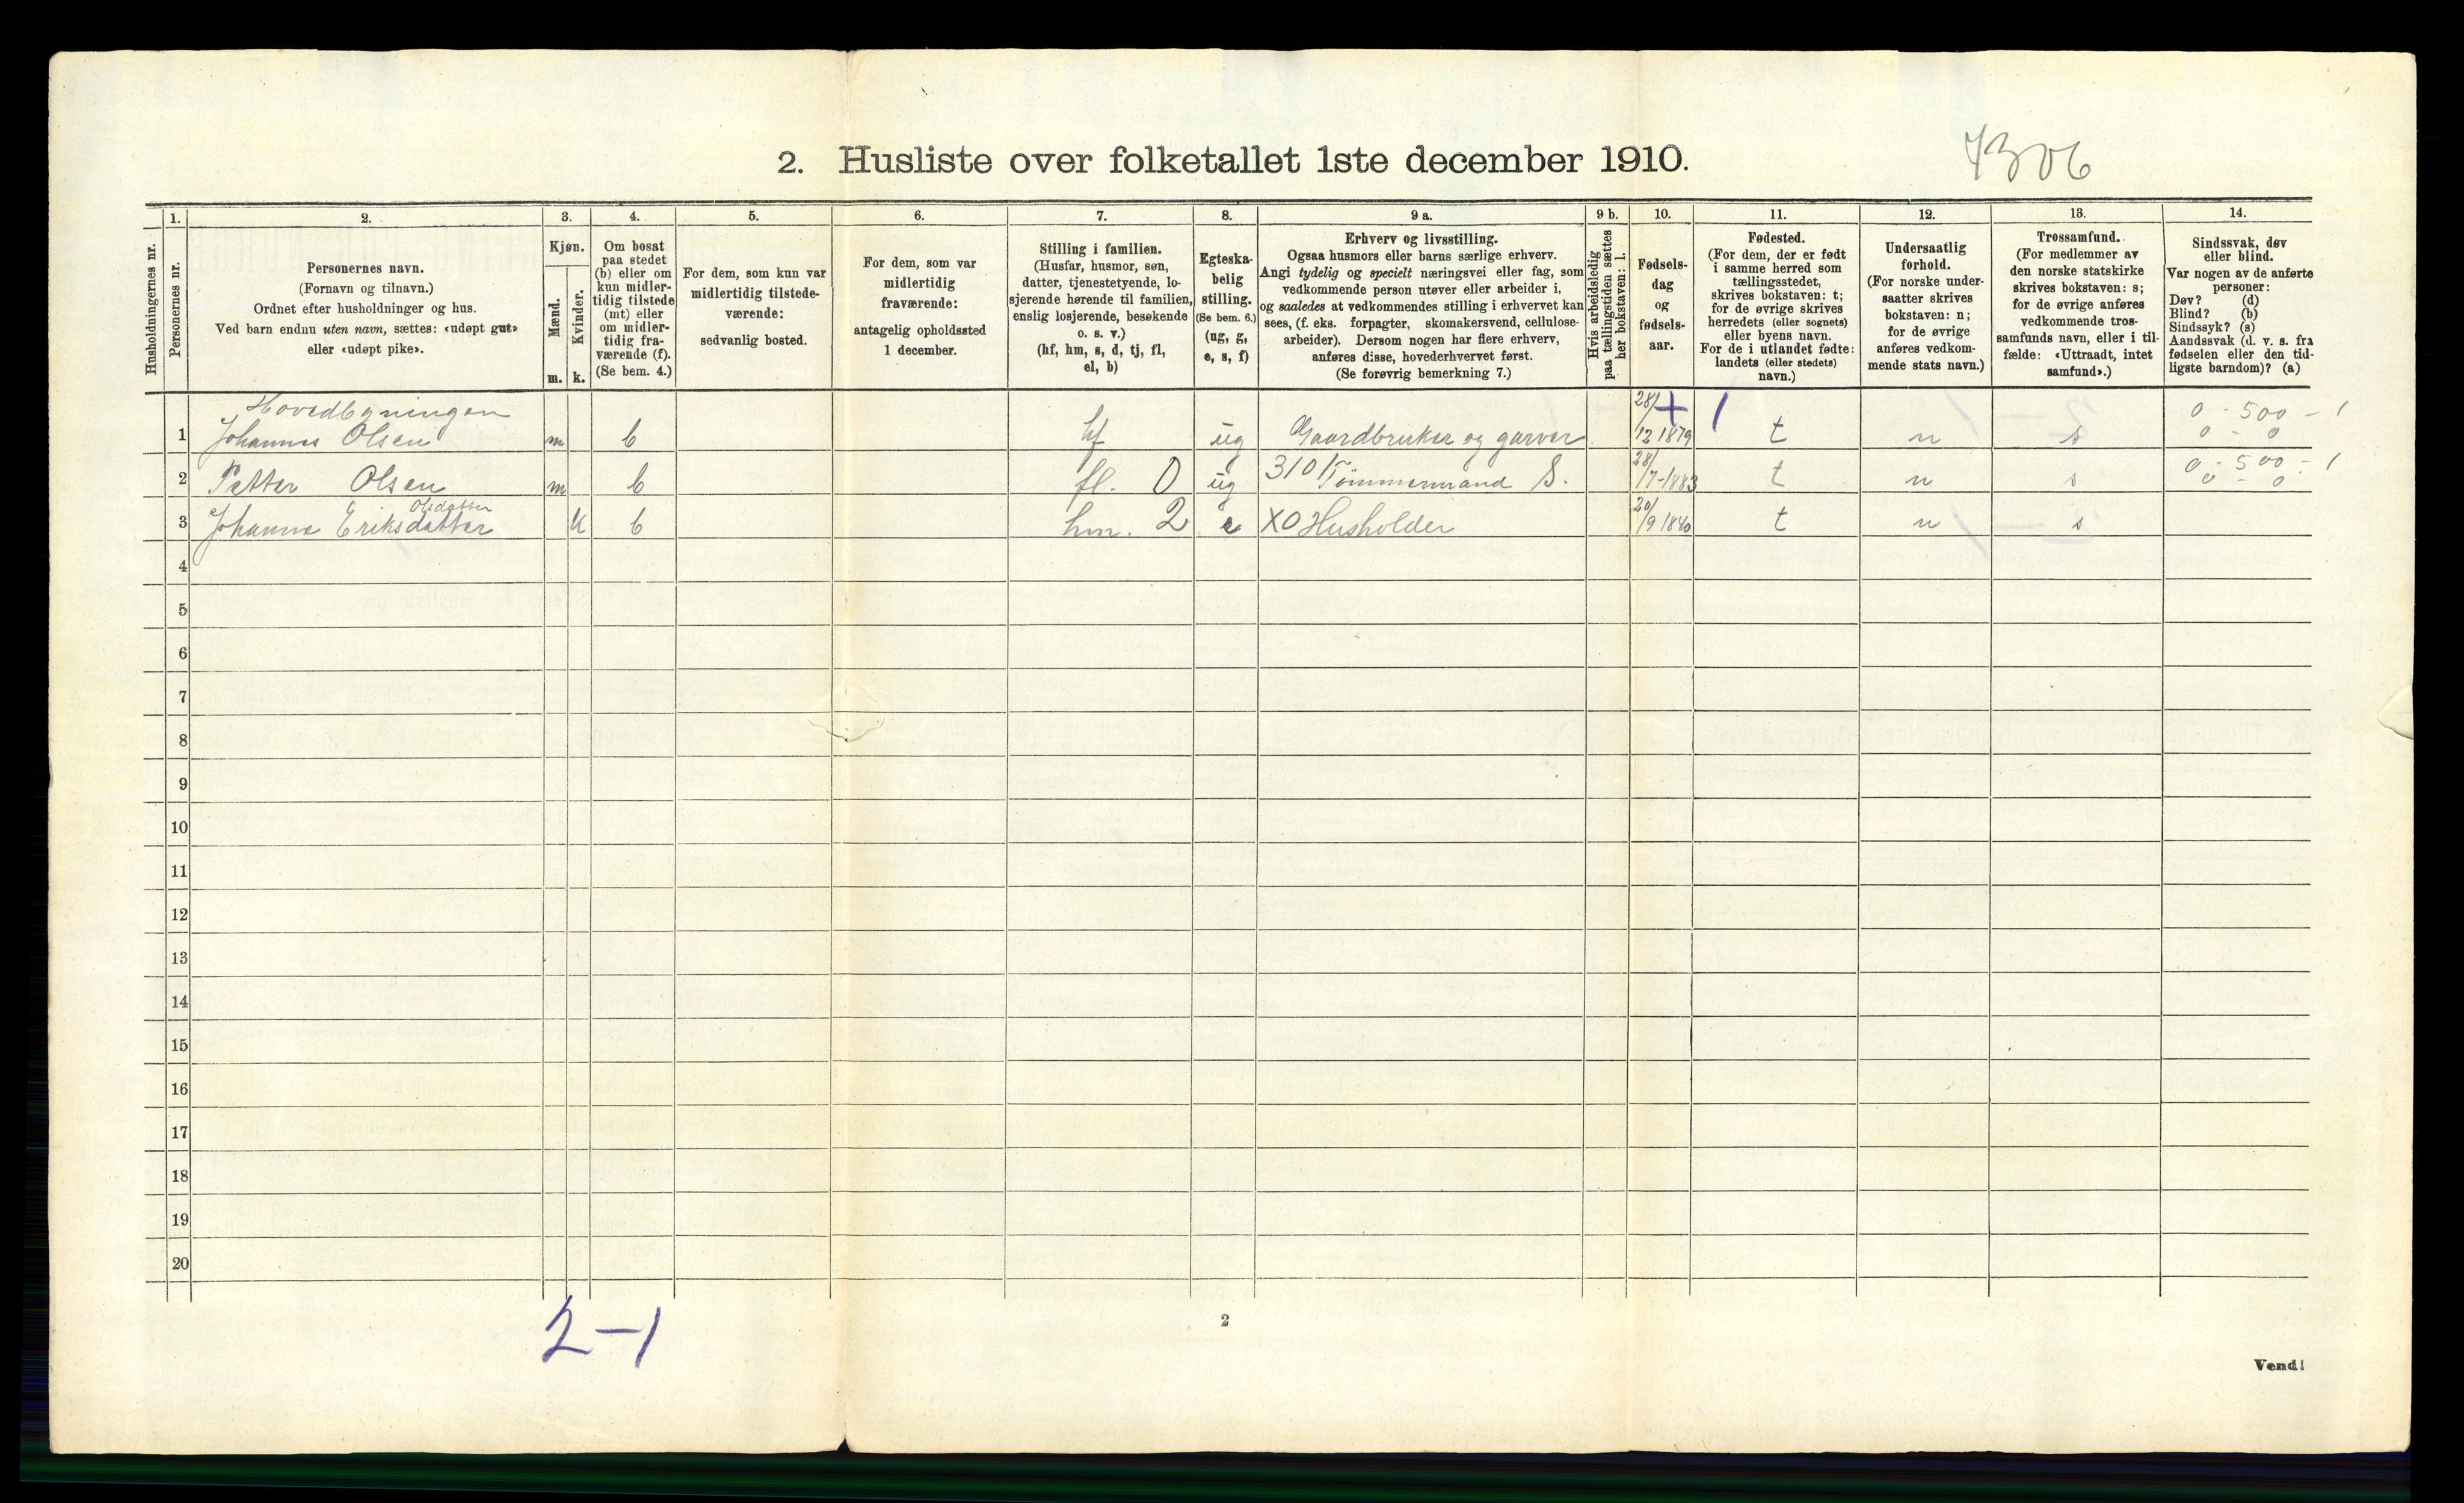 2. Husliste over folketallet 1ste december 1910.
7306
1. 2. 3. 4. 5. 6. 7. 8. 9 a. 9 b. 10. 11. 12. 13. 14.
Husholdningernes nr.
Personernes nr.
Personernes navn.
(Fornavn og tilnavn.)
Ordnet efter husholdninger og hus.
Ved barn endnu uten navn, sættes: «udøpt gut»
eller «udøpt pike».
Kjøn.
Mænd.
Kvinder.
m. k.
Om bosat
paa stedet
(b) eller om
kun midler-
tidig tilstede
(mt) eller
om midler-
tidig fra-
værende (f).
(Se bem. 4.)
For dem, som kun var
midlertidig tilstede-
værende:
sedvanlig bosted.
For dem, som var
midlertidig
fraværende:
antagelig opholdssted
1 december.
Stilling i familien.
(Husfar, husmor, søn,
datter, tjenestetyende, lo-
sjerende hørende til familien,
enslig losjerende, besøkende
o. s. v.)
(hf, hm, s, d, tj, fl,
el, b)
Egteska-
belig
stilling.
(Se bem. 6.)
(ug, g,
e, s, f)
Erhverv og livsstilling.
Ogsaa husmors eller barns særlige erhverv.
Angi tydelig og specielt næringsvei eller fag, som
vedkommende person utøver eller arbeider i,
og saaledes at vedkommendes stilling i erhvervet kan
sees, (f. eks. forpagter, skomakersvend, cellulose-
arbeider). Dersom nogen har flere erhverv,
anføres disse, hovederhvervet først.
(Se forøvrig bemerkning 7.)
Hvis arbeidsledig
paa tællingstiden sættes
her bokstaven: l.
Fødsels-
dag
og
fødsels-
aar.
Fødested.
(For dem, der er født
i samme herred som
tællingsstedet,
skrives bokstaven: t;
for de øvrige skrives
herredets (eller sognets)
eller byens navn.
For de i utlandet fødte:
landets (eller stedets)
navn.)
Undersaatlig
forhold.
(For norske under-
saatter skrives
bokstaven: n;
for de øvrige
anføres vedkom-
mende stats navn.)
Trossamfund.
(For medlemmer av
den norske statskirke
skrives bokstaven: s;
for de øvrige anføres
vedkommende tros-
samfunds navn, eller i til-
fælde: «Uttraadt, intet
samfund».)
Sindssvak, døv
eller blind.
Var nogen av de anførte
personer:
Døv? (d)
Blind? (b)
Sindssyk? (s)
Aandssvak (d. v. s. fra
fødselen eller den tid-
ligste barndom)? (a)
Hovedbygningen 28/ + 1 0 - 500 - 1
1 Johannes Olsen m b hf ug Gaardbruker og garver 12 1879 t n s 0 - 0
2 Petter Olsen m b fl. 0 ug 310 Tømmermand S. 28/7-1883 t n s 0 - 500 - 1
0 - 0
Olsdatter
3 Johanne Eriksdatter k b hm. 2 e X0 Husholder 20/9 1840 t n s
4
5
6
7
8
9
10
11
12
13
14
15
16
17
18
19
20
2-1
2
Vend!